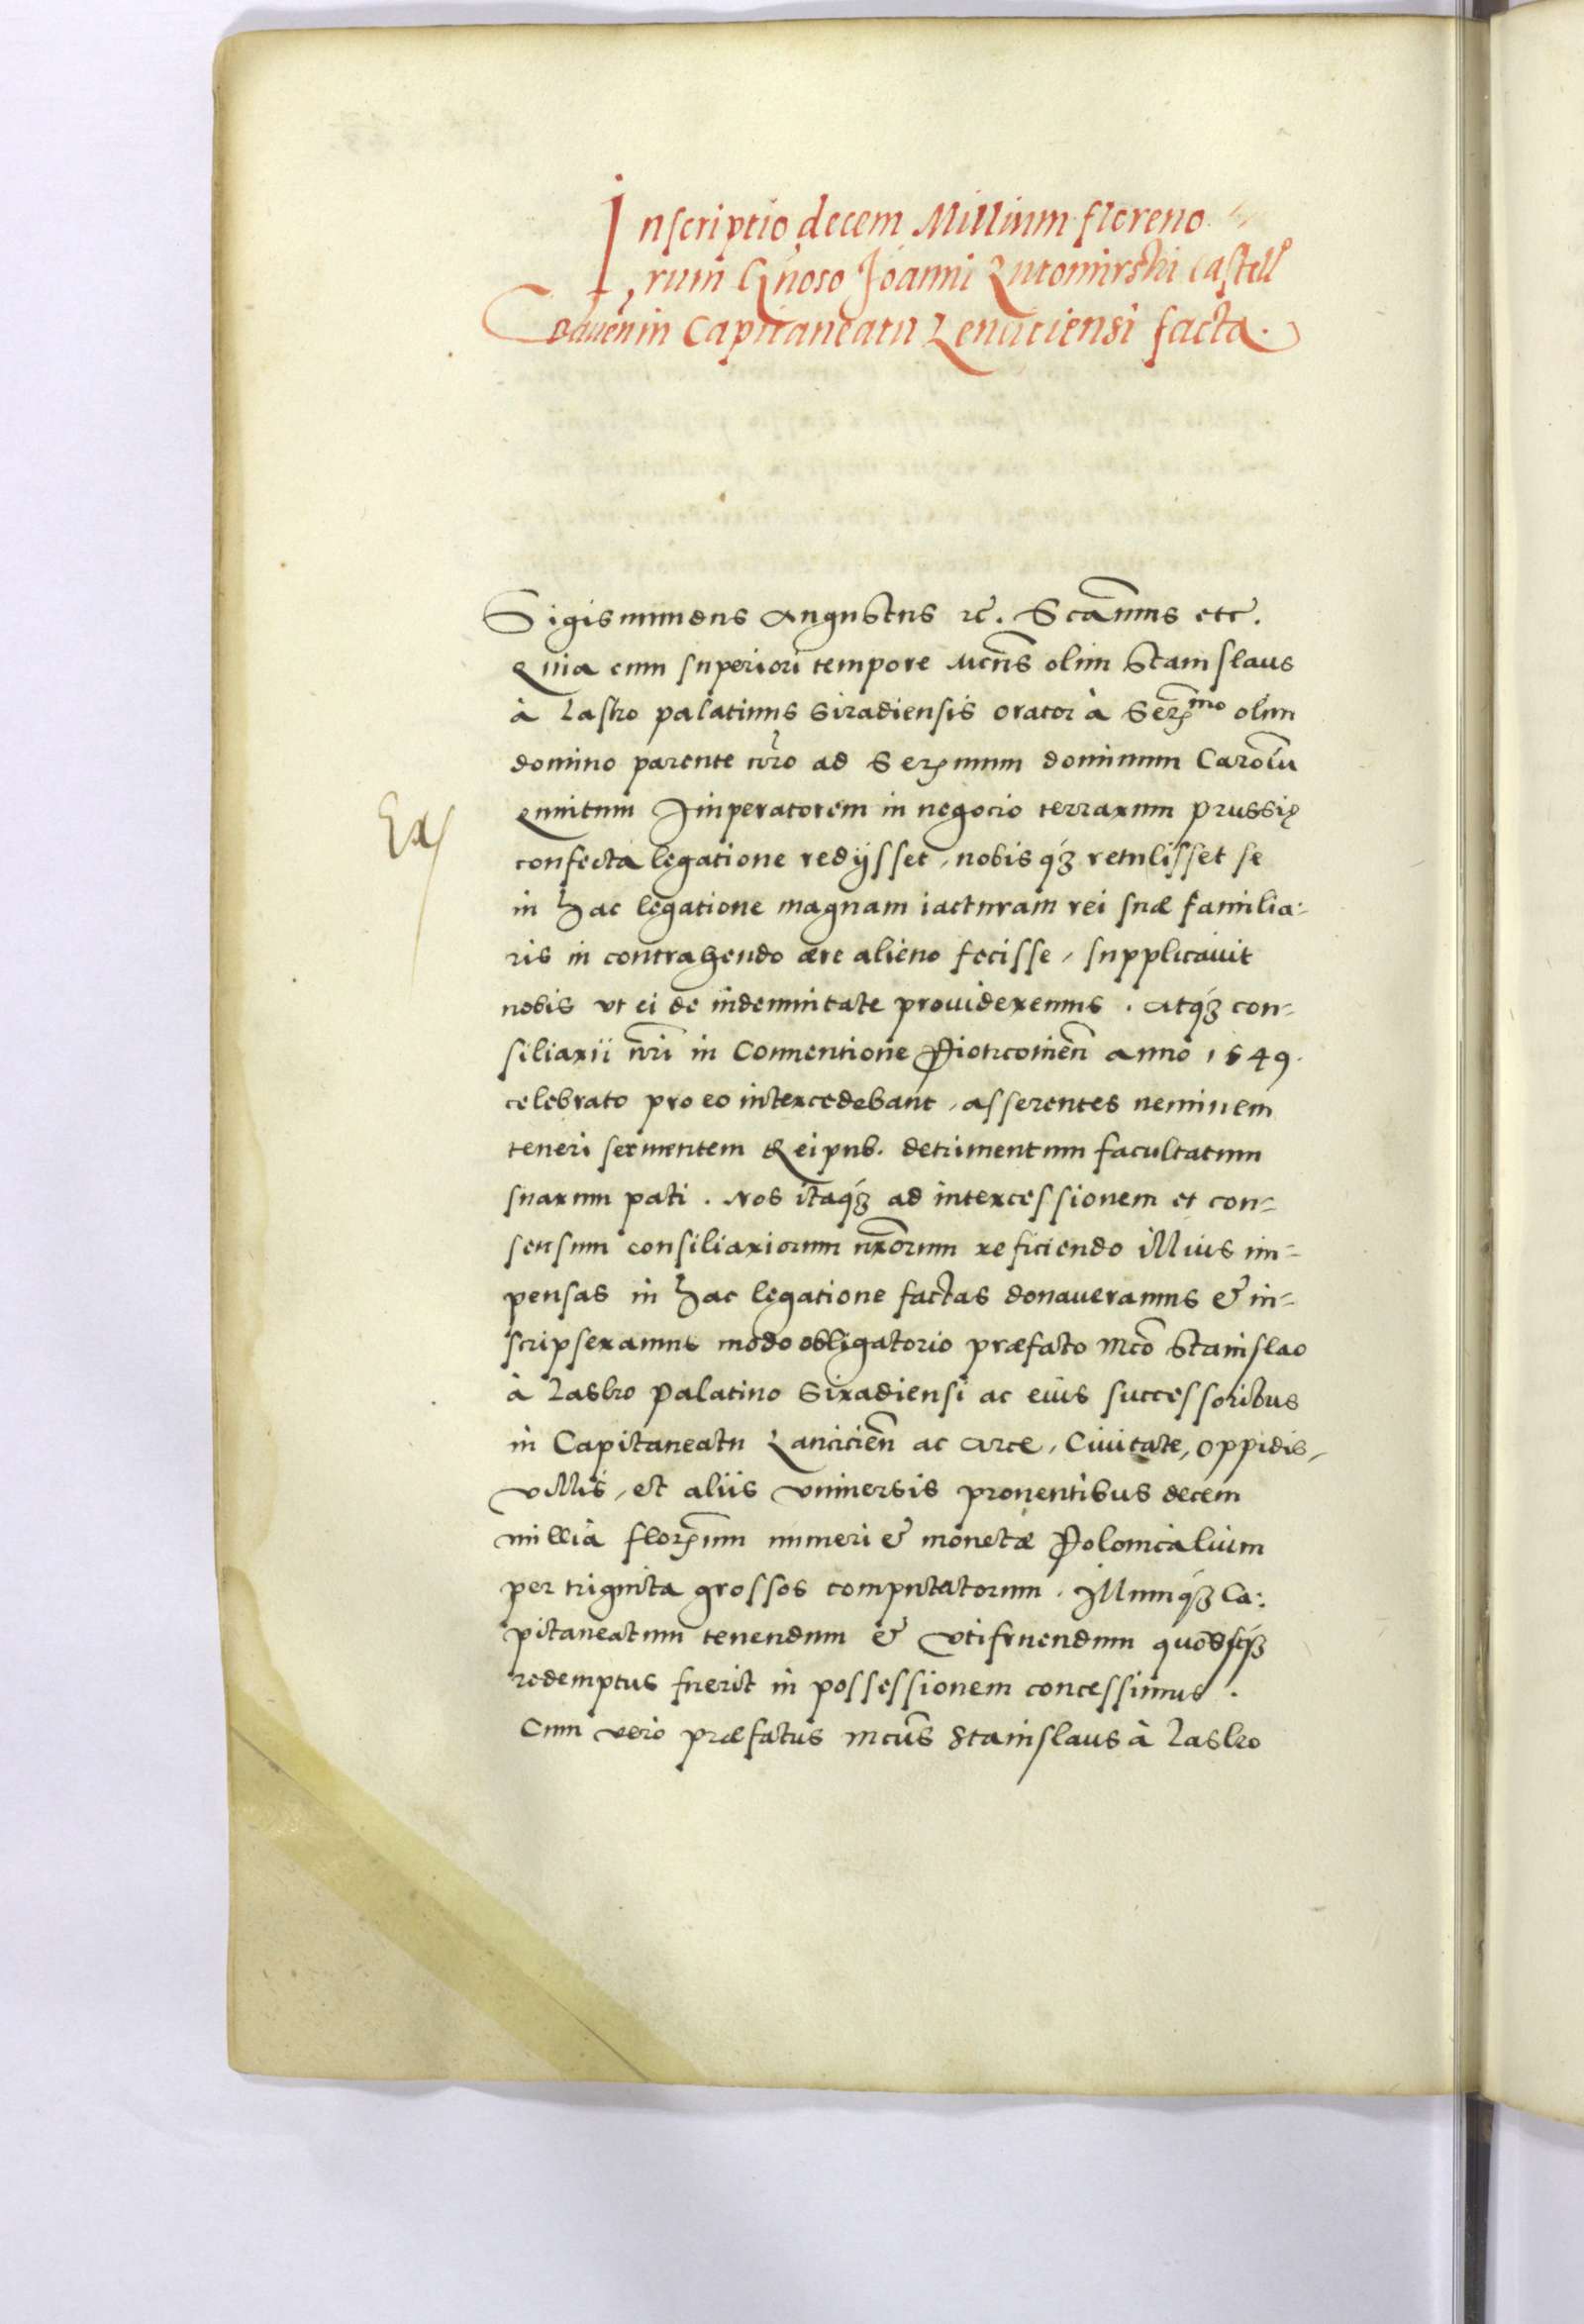 Inscriptio decem Millium floreno
rum Gnoso Joanni Lutomirski Castell
Raven in Capitaneatu Lenciciensi facta.
Sigismundus Augustus etc. Scamus etc.
Quia cum superiori tempore Mcns olim Stanislaus
à Lasko palatinus Siradiensis orator à Sermo olim
domino parente nro ad Sermum dominum Carolu
Ex
quintum Imperatorem in negocio terrarum Prussię
confecta legatione redijsset, nobisq3 retulisset se
in hac legatione magnam iacturam rei suæ familia:
ris in contrahendo ære alieno fecisse, supplicavit
nobis ut ei de indemnitate provideremus. Atq3 con-
siliarii nri in Conventione Piotrcovien anno 1549.
celebrato pro eo intercedebant, asserentes neminem
teneri servientem Reipub. detrimentum facultatum
suarum pati. Nos itaq3 ad intercessionem et con-
sensum consiliariorum nrorum reficiendo illius im-
pensas in hac legatione factas donaveramus & in-
scripseramus modo obligatorio præfato Mco Stanislao
à Lasko Palatino Siradiensi ac eius successoribus
in Capitaneatu Lancicien ac Arce, Civitate, oppidis,
villis, et aliis universis proventibus decem
millia florenum numeri & monetæ Polonicalium
per triginta grossos computatorum. Illumq3 Ca:
pitaneatum tenendum & utifruendum quodsq3
redemptus fuerit in possessionem concessimus.
Cum vero præfatus Mcus Stanislaus à Lasko